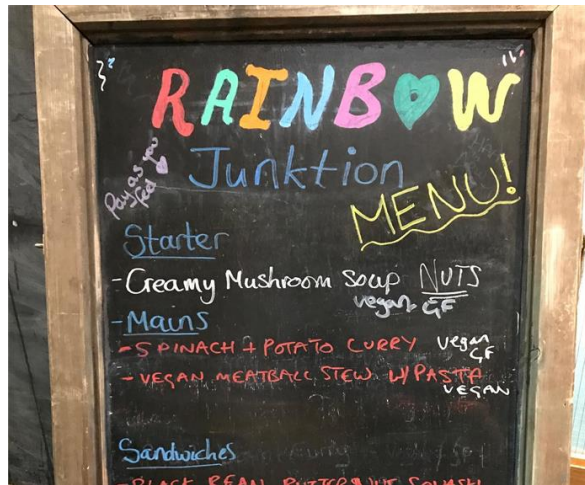 RAINBOW
Pay as you feel
Junktion
MENU!
Starter
-Creamy Mushroom Soup NUTS
vegan GF
-Mains
-SPINACH + POTATO CURRY vegan GF
-VEGAN MEATBALL STEW W/ PASTA
VEGAN
Sandwiches
-BLACK BEAN BUTTERNUT SQUASH